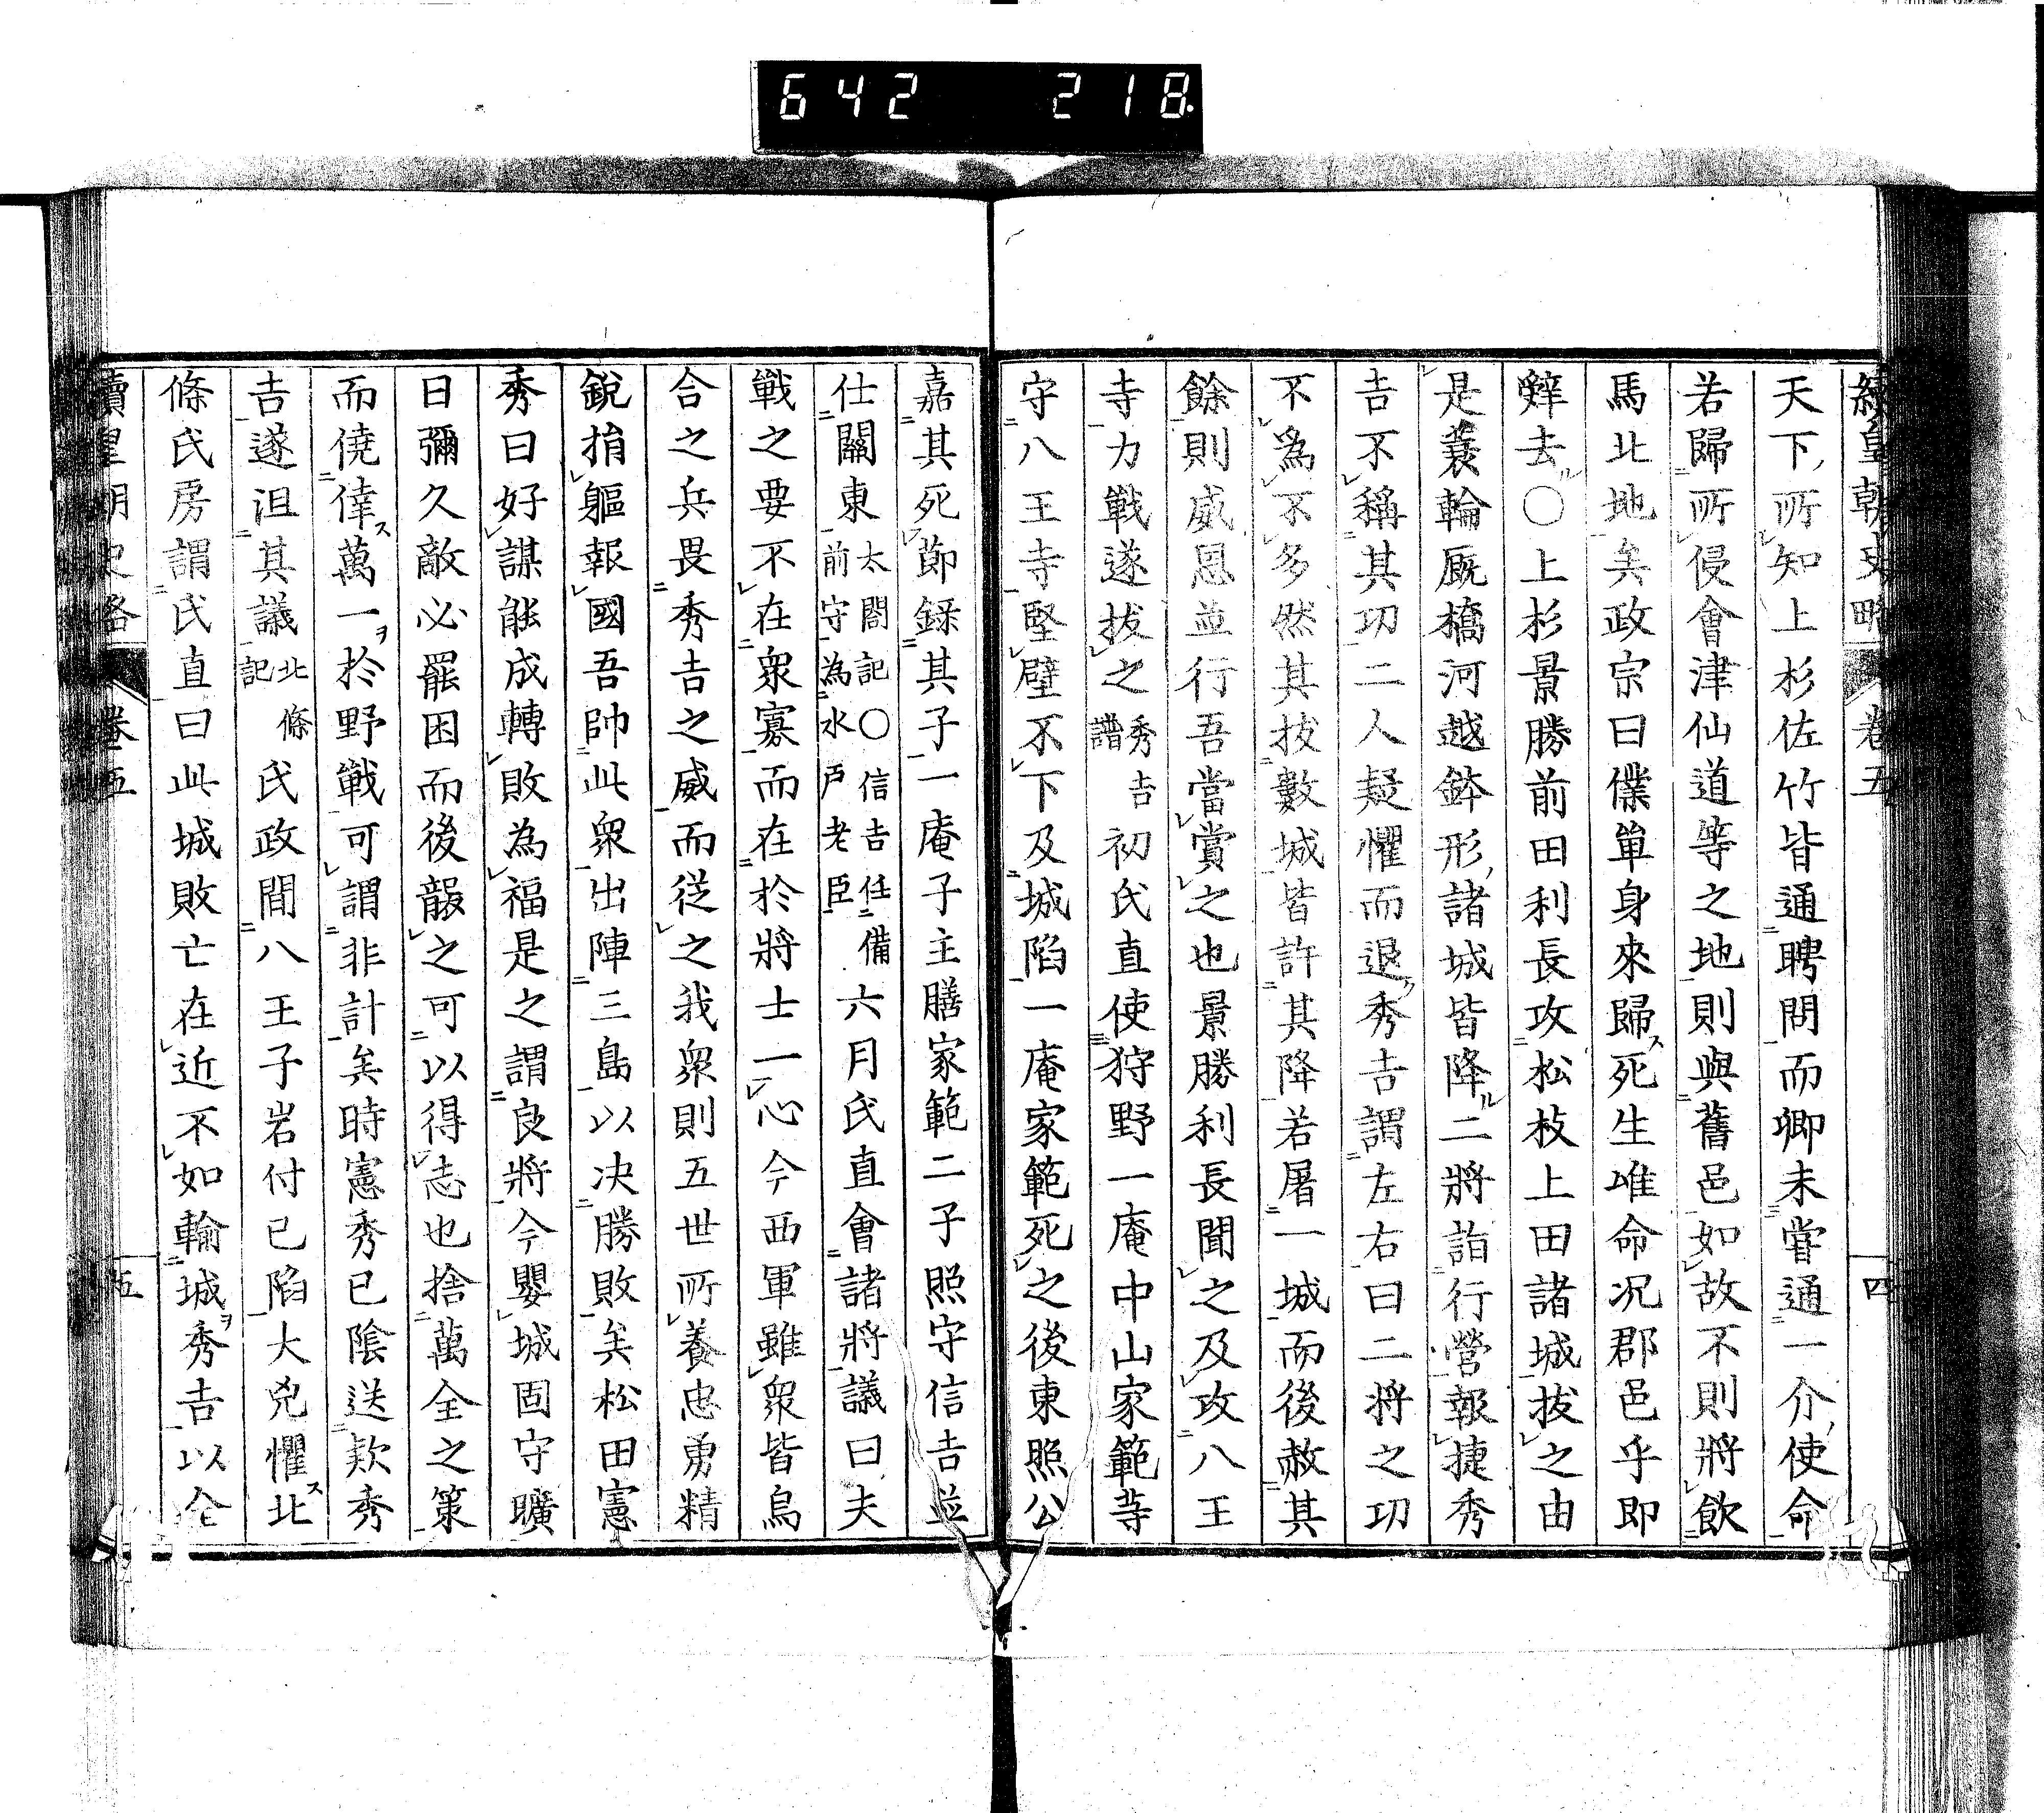 642 218
續皇朝史略 卷五 四
天下所知上杉佐竹皆通聘問而卿未嘗通一介使命
若歸所侵會津仙道等之地則與舊邑如故不則將飲
馬北地矣政宗曰僕單身來歸死生唯命况郡邑乎即
辤去〇上杉景勝前田利長攻松枝上田諸城拔之由
是蓑輪厩橋河越鉢形諸城皆降二將詣行營報捷秀
吉不稱其功二人疑懼而退秀吉謂左右曰二將之功
不爲不多然其拔數城皆許其降若屠一城而後赦其
餘則威恩並行吾當賞之也景勝利長聞之及攻八王
寺力戰遂拔之秀吉譜初氏直使狩野一庵中山家範等
守八王寺堅壁不下及城陷一庵家範死之後東照公
嘉其死節録其子一庵子主膳家範二子照守信吉並
仕關東太閤記〇信吉任備前守為水戸老臣六月氏直會諸將議曰夫
戰之要不在衆寡而在於將士一心今西軍雖衆皆烏
合之兵畏秀吉之威而從之我衆則五世所養忠勇精
銳捐軀報國吾帥此衆出陣三島以决勝敗矣松田憲
秀曰好謀能成轉敗為福是之謂良將今嬰城固守曠
日彌久敵必罷困而後蹑之可以得志也捨萬全之策
而僥倖ス萬一ヲ於野戰可謂非計矣時憲秀已陰送欵秀
吉遂沮其議北條記氏政聞八王子岩付已陷大兇懼ス北
條氏房謂氏直曰此城敗亡在近不如輸城ヲ秀吉以全
續皇朝史略 卷五 五